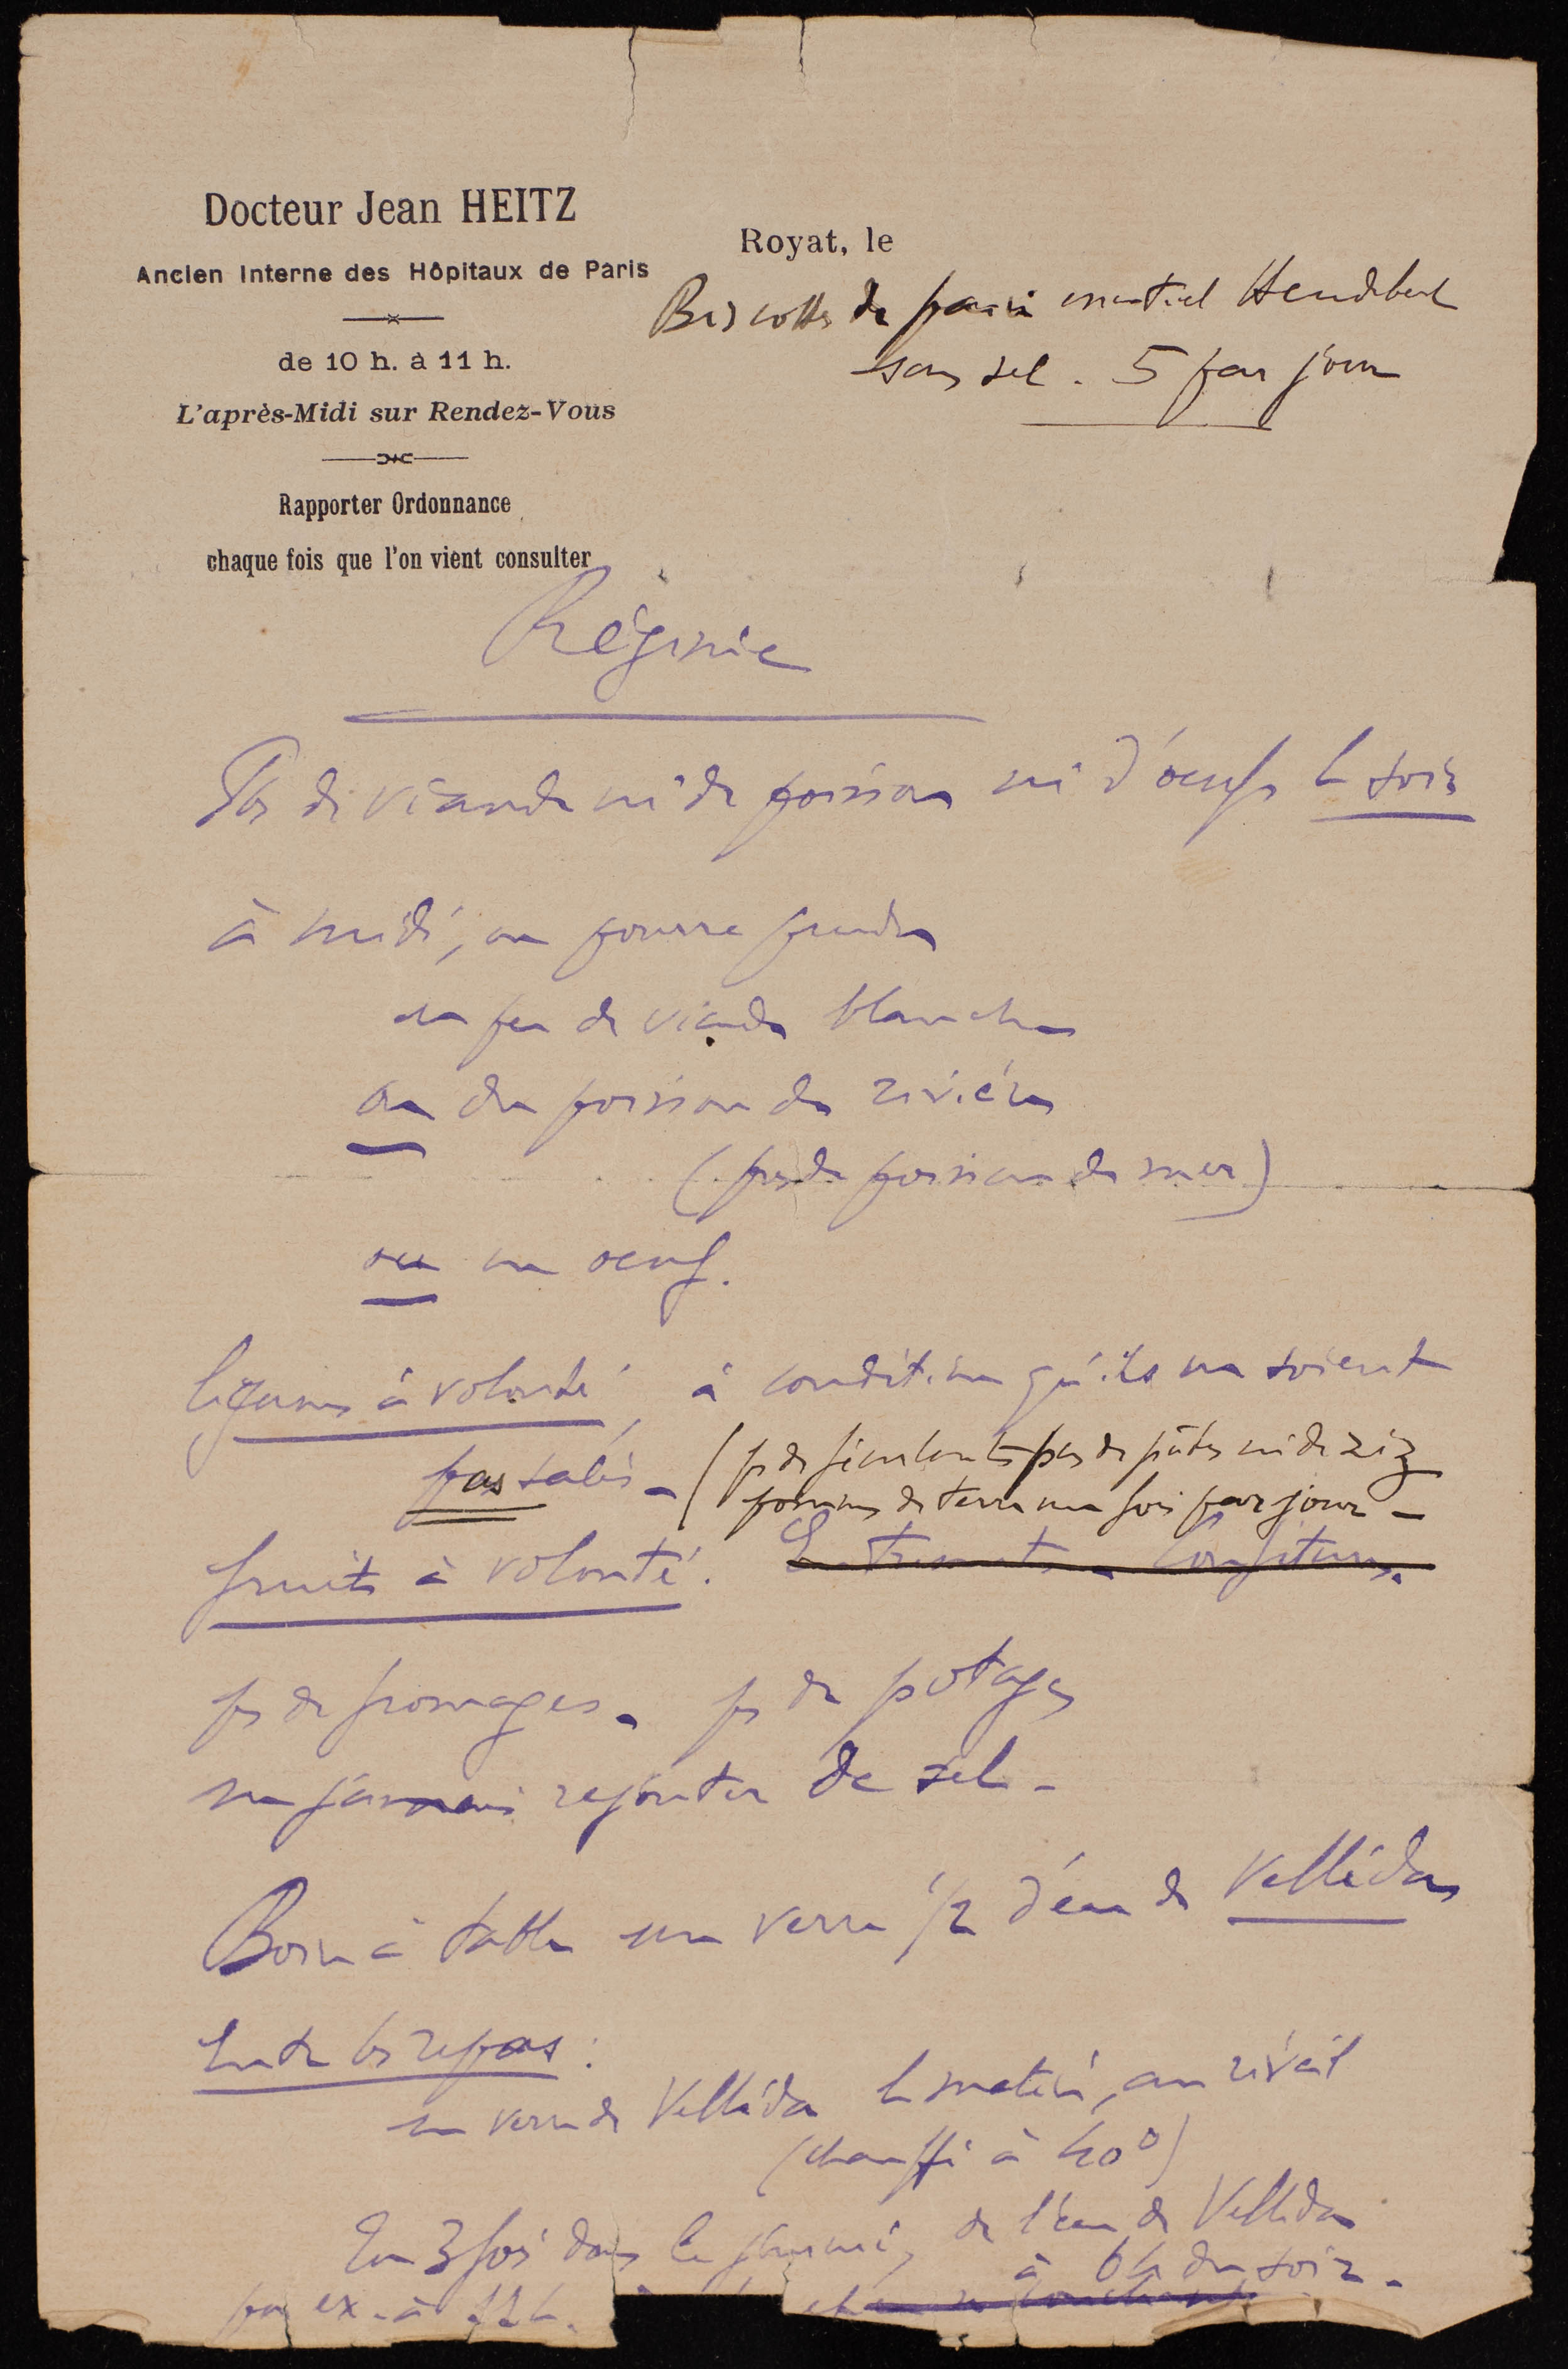 Docteur Jean HEITZ
Ancien Interne des Hôpitaux de Paris
de 10 h. à 11 h.
L'après-Midi sur Rendez-Vous
Rapporter Ordonnance
chaque fois que l'on vient consulter
Royat, le
Biscottes de pain essentiel Heudebert
sans sel. 5 par jour
Régime
Pas de viande ni de poisson ni d'oeufs le soir
à midi, on pourra prendre
un peu de viande blanche
ou du poisson de rivière
(pas de poisson de mer)
ou un oeuf.
légumes à volonté, à condition qu'ils ne soient
pas salés - (pas de féculents pas de pâtes ni de riz
pommes de terre une fois par jour -
fruits à volonté. Entremets - Confitures.
pas de fromages - pas de potages
ne jamais rajouter de sel -
Boire à table un verre 1/2 d'eau de Velléda
Entre les repas :
un verre de Velléda le matin, au réveil
(chauffé à 40°)
En 3 fois dans la journée, de l'eau de Velléda
par ex. à 11 h. à 6h du soir -
et en se couchant